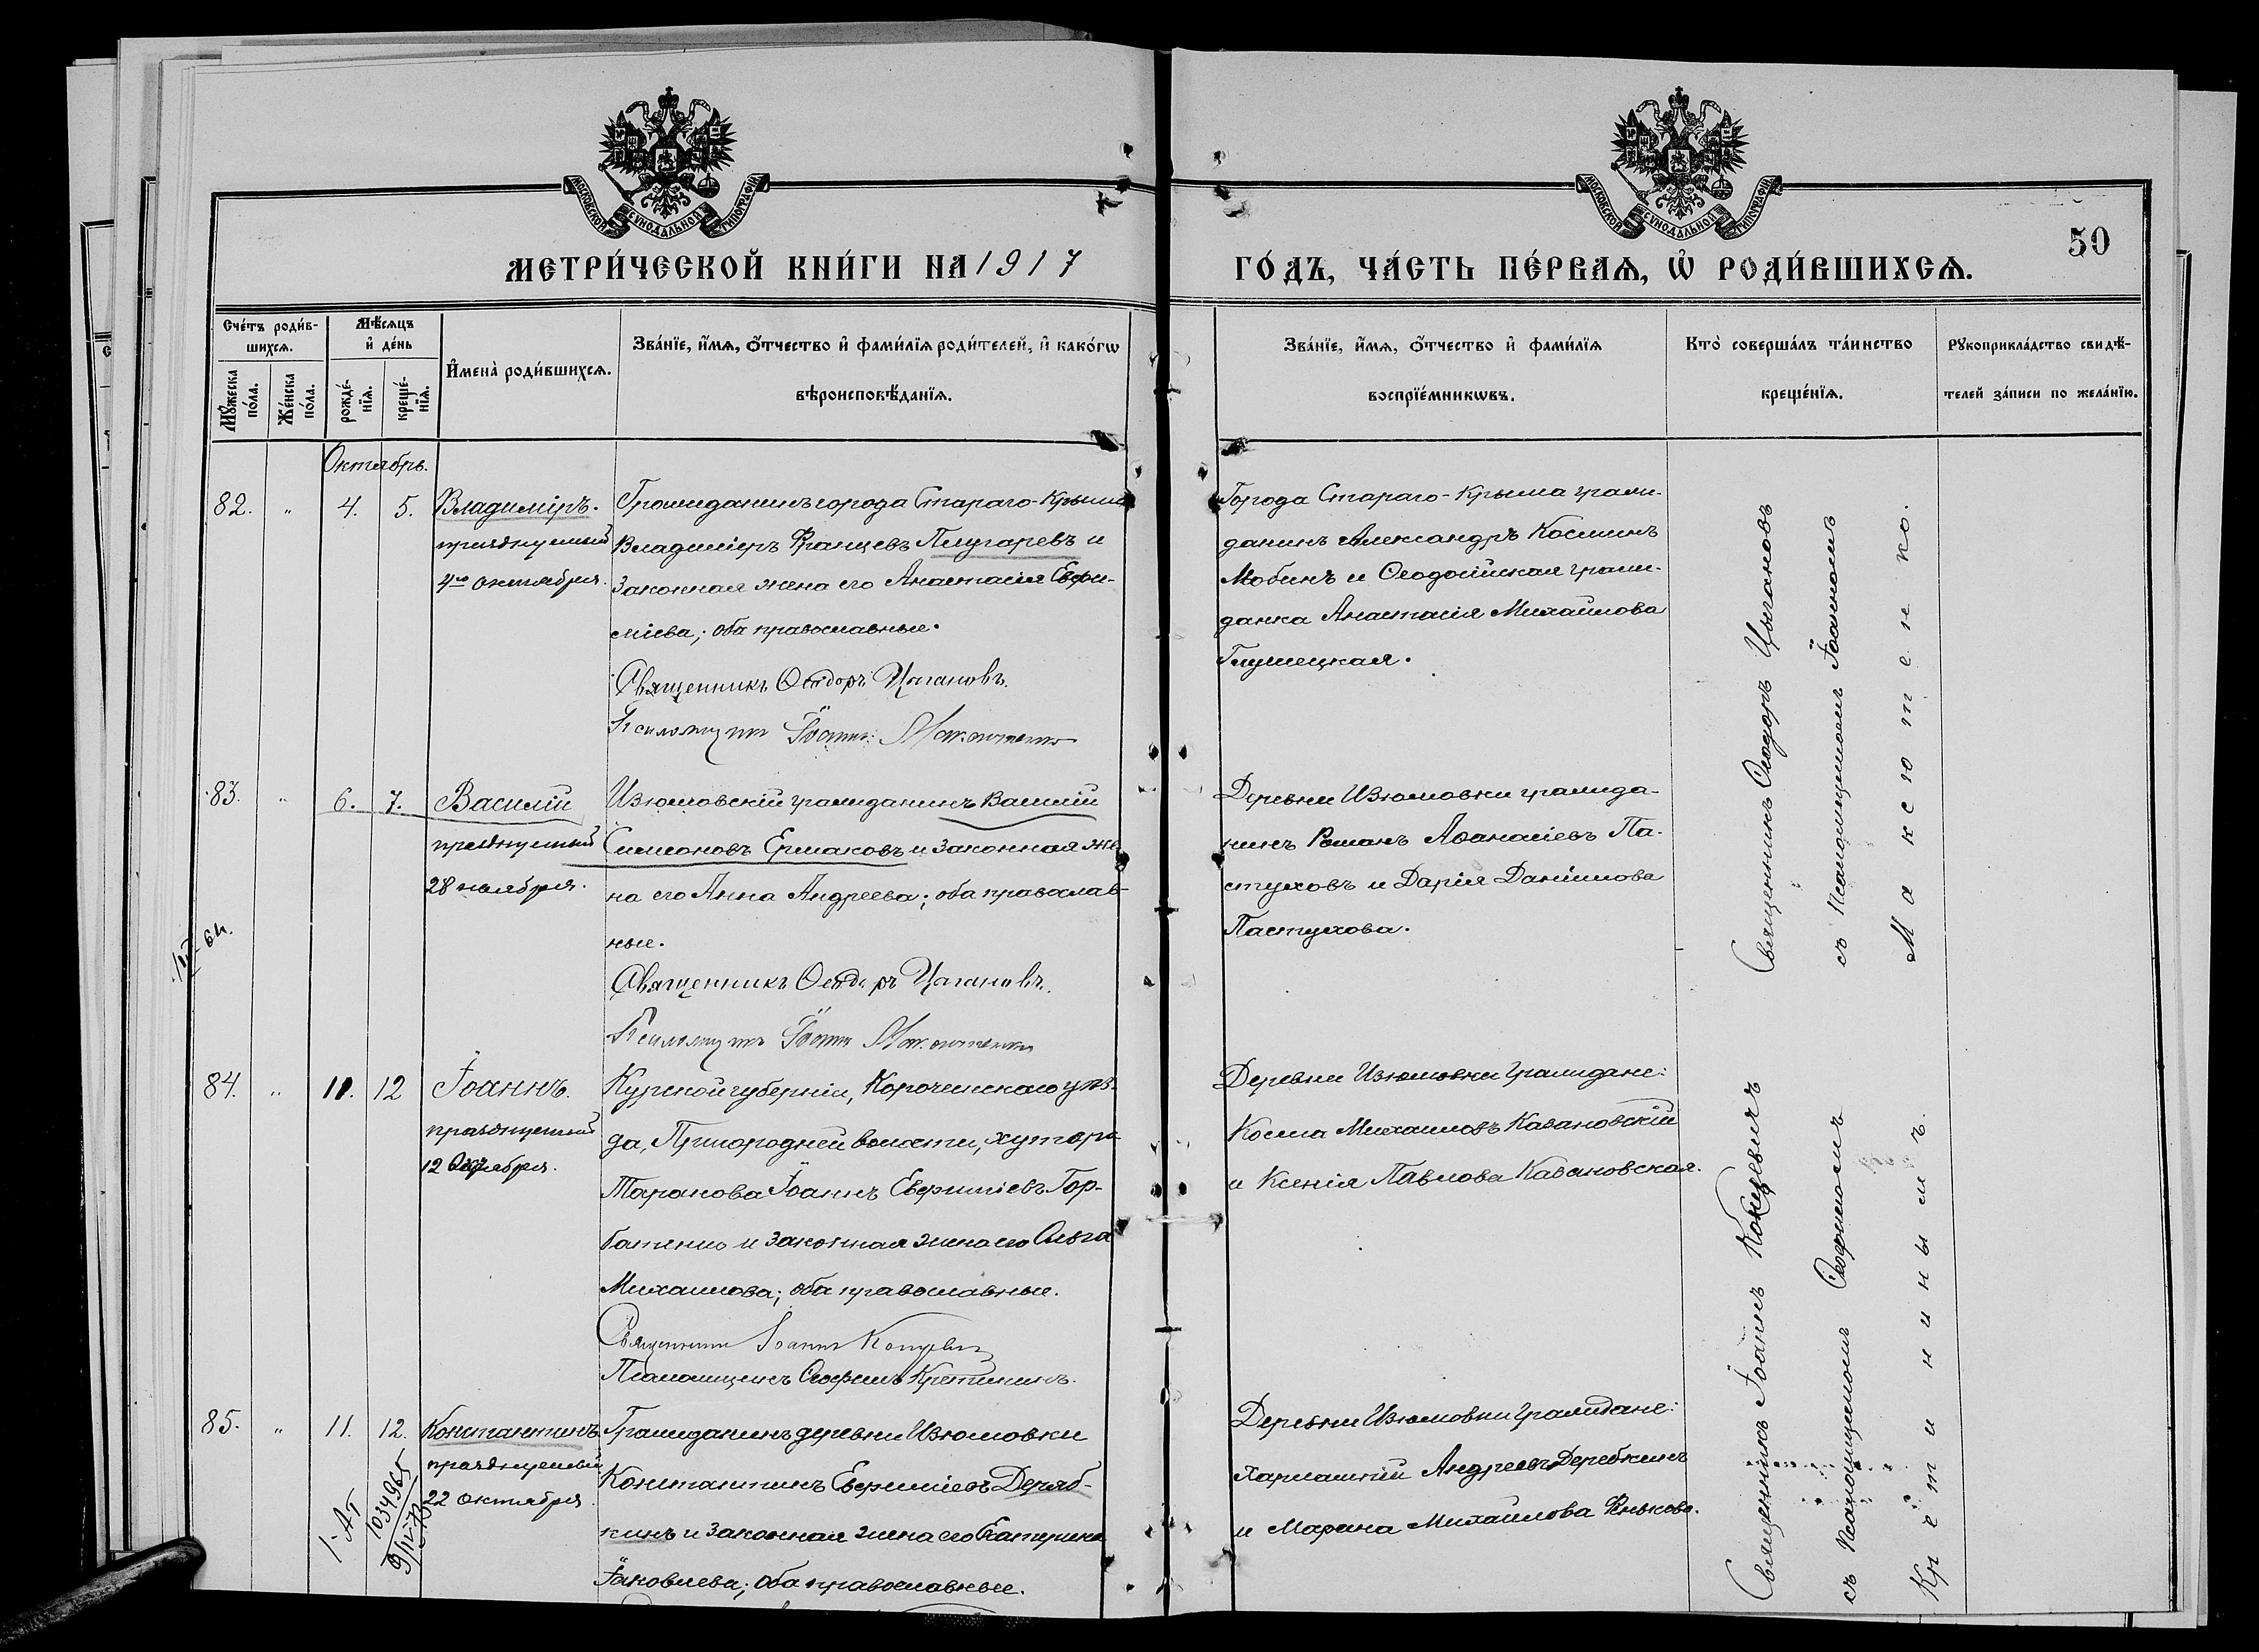 МОСКОВСКОЙ СѴНОДАЛЬНОЙ ТИПОГРАФІИ
МОСКОВСКОЙ СѴНОДАЛЬНОЙ ТИПОГРАФІИ
МЕТРИ́ЧЕСКОЙ КНИ́ГИ НА 1917
ГО́ДЪ, ЧА́СТЬ ПЕ́РВАѦ, Ѽ РОДИ́ВШИХСѦ.
50
Сче́тъ роди́в-
шихсѧ.
Мѣ́сѧцъ
и҆ де́нь
И҆мена̀ роди́вшихсѧ.
Зва́нїе, и҆́мѧ, ѻ҆́тчество и҆ фами́лїѧ роди́телей, и҆ како́гѡ
вѣроисповѣ́данїѧ.
Мꙋ́жеска
по́ла.
Же́нска
по́ла.
рожде́-
нїѧ.
креще́-
нїѧ.
Зва́нїе, и҆́мѧ, ѻ҆́тчество и҆ фами́лїѧ
воспрїе́мникѡвъ.
Кто̀ соверша́лъ та́инство
креще́нїѧ.
Рꙋкоприкла́дство свидѣ́-
телей за́писи по жела́нїю.
Октябрь.
82. " 4. 5. Владиміръ.
празднуемый
4го октября.
Гражданинъ города Стараго-Крыма
Владиміръ Францевъ Плугаревъ и
законная жена его Анастасія Евфи-
міева; оба православные.
Священникъ Ѳеодоръ Цыгановъ.
Псаломщикъ Іоаннъ Максютенко
Города Стараго-Крыма граж-
данинъ Александръ Косминъ
Мобинъ и Ѳеодосійская граж-
данка Анастасія Михайлова
Глушецкая.
Священникъ Ѳеодоръ Цыгановъ
съ псаломщикомъ Іоанномъ
Максютенко.
83. " 6. 7. Василій
празднуемый
28 ноября.
Изюмовскій гражданинъ Василій
Симеоновъ Ермаковъ и законная же-
на его Анна Андреева; оба православ-
ные.
Священникъ Ѳеодоръ Цыгановъ.
Псаломщикъ Іоаннъ Максютенко
Деревни Изюмовки гражда-
нинъ Романъ Аѳанасіевъ Па-
стуховъ и Дарія Даніилова
Пастухова.
84. " 11. 12 Іоаннъ.
празднуемый
12 Октября.
Курской губерніи, Корочанскаго уѣз-
да, Пригородней волости, хутора
Таранова Іоаннъ Евфиміевъ Гор-
батенко и законная жена его Ольга
Михаилова; оба православные.
Священникъ Іоаннъ Концевичъ
Псаломщикъ Ѳеофилъ Кретининъ.
Деревни Изюмовки граждане:
Косма Михаиловъ Казановскій
и Ксенія Павлова Казановская.
Священникъ Іоаннъ Концевичъ
съ псаломщикомъ Ѳеофиломъ
Кретининымъ.
85. " 11. 12. Константинъ
празднуемый
22 октября.
Гражданинъ деревни Изюмовки
Константинъ Евфиміевъ Деряб-
кинъ и законная жена его Екатерина
Іаковлева; оба православные.
Деревни Изюмовки граждане:
Харлампій Андреевъ Деребкинъ
и Марина Михаилова
1-АТ
1034965